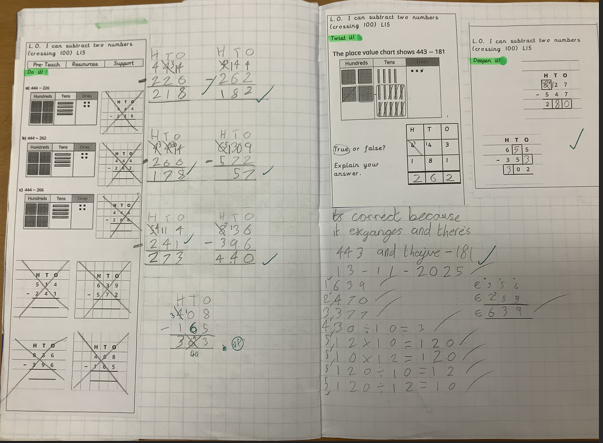 L.O. I can subtract two numbers
(crossing 100) L15
Pre-Teach Resources Support
Do it!
a) 444 – 226
Hundreds Tens Ones
H T O
b) 444 – 262
Hundreds Tens Ones
H T O
c) 444 – 266
Hundreds Tens Ones
H T O
H T O
5 1 4
- 2 4 1
H T O
6 3 9
- 5 7 2
H T O
8 3 6
- 3 9 6
H T O
4 0 8
- 1 6 5
H T O
2 2 6
2 1 8
H T O
- 2 6 2
1 8 2
H T O
2 6 6
1 7 8
H T O
- 5 7 2
5 7
H T O
2 4 1
2 7 3
H T O
8 3 6
- 3 9 6
4 4 0
H T O
4 0 8
- 1 6 5
L.O. I can subtract two numbers
(crossing 100) L15
Twist it!
The place value chart shows 443 – 181
Hundreds Tens
True or false?
Explain your
answer.
H T O
4 4 3
1 8 1
2 6 2
L.O. I can subtract two numbers
(crossing 100) L15
Deepen it!
H T O
8 2 7
- 5 4 7
2 8 0
H T O
6 5 5
- 3 5 3
3 0 2
is correct because
it exganges and there's
443 and theyive -181
13-11-2025
639
470
377
30 ÷ 10 = 3
12 × 10 = 120
10 × 12 = 120
120 ÷ 10 = 12
120 ÷ 12 = 10
€ 639